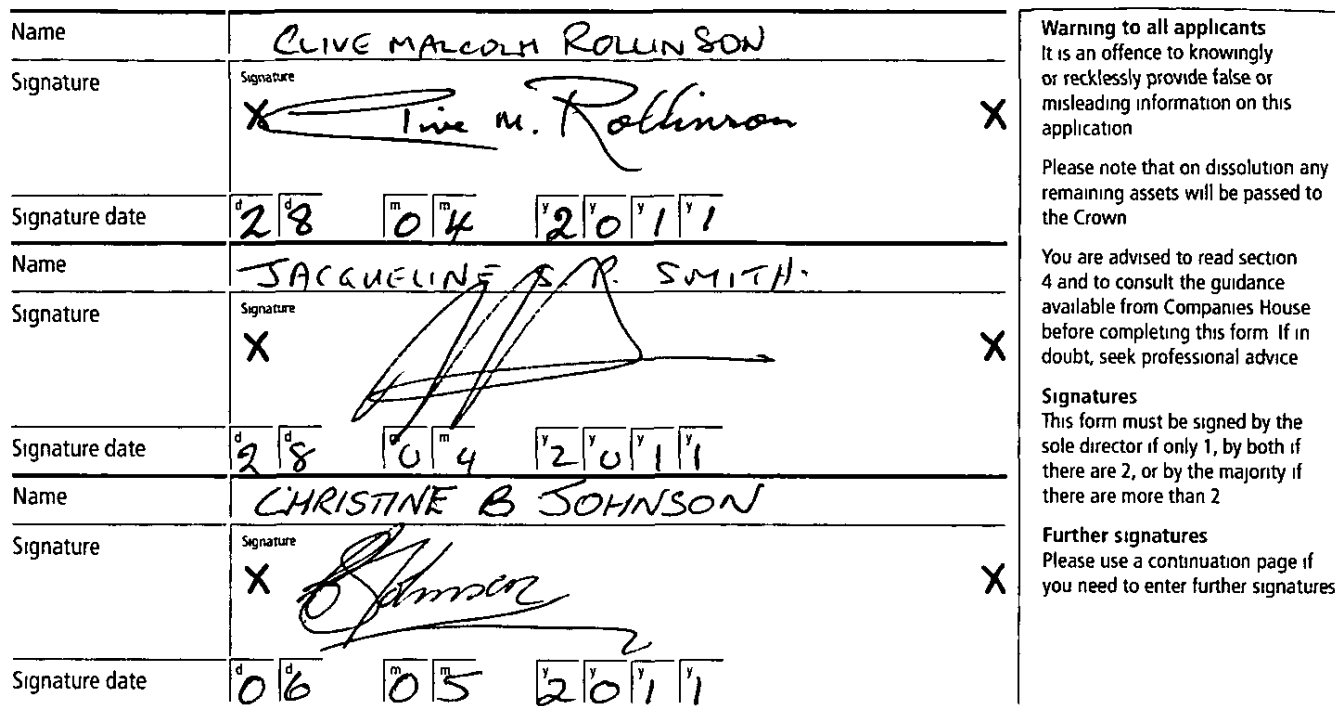 Name
CLIVE MALCOLM ROLLINSON
Signature
Signature
X Clive M. Rollinson X
Signature date
d2 d8 m0 m4 y2 y0 y1 y1
Name
JACQUELINE S. P. SMITH.
Signature
Signature
X X
Signature date
d2 d8 m0 m4 y2 y0 y1 y1
Name
CHRISTINE B JOHNSON
Signature
Signature
X BJohnson X
Signature date
d0 d6 m0 m5 y2 y0 y1 y1
Warning to all applicants
It is an offence to knowingly
or recklessly provide false or
misleading information on this
application
Please note that on dissolution any
remaining assets will be passed to
the Crown
You are advised to read section
4 and to consult the guidance
available from Companies House
before completing this form If in
doubt, seek professional advice
Signatures
This form must be signed by the
sole director if only 1, by both if
there are 2, or by the majority if
there are more than 2
Further signatures
Please use a continuation page if
you need to enter further signatures